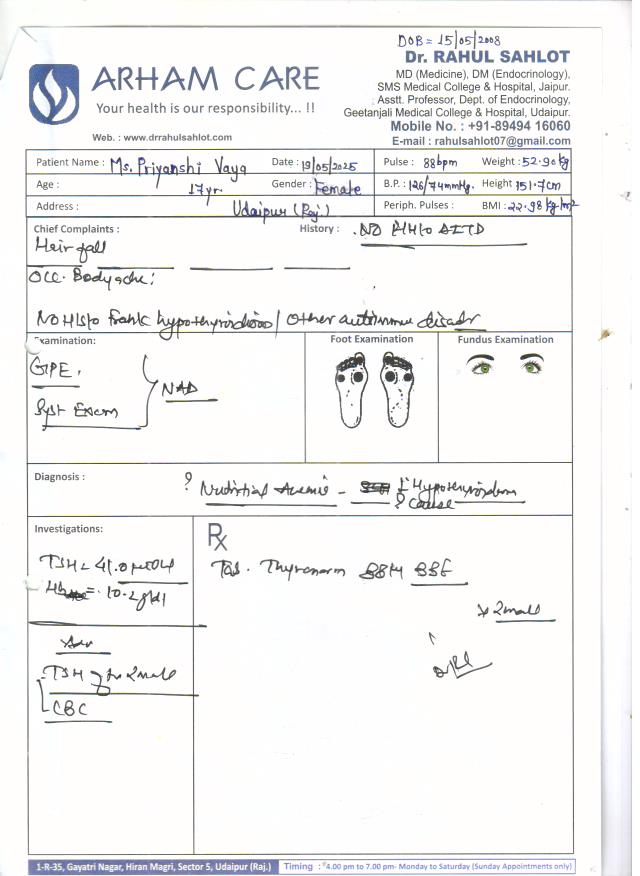 DOB = 15/05/2008
Dr. RAHUL SAHLOT
MD (Medicine), DM (Endocrinology),
SMS Medical College & Hospital, Jaipur.
Asstt. Professor, Dept. of Endocrinology,
Geetanjali Medical College & Hospital, Udaipur.
Mobile No. : +91-89494 16060
E-mail : rahulsahlot07@gmail.com
ARHAM CARE
Your health is our responsibility... !!
Web. : www.drrahulsahlot.com
Patient Name : Ms. Priyanshi Vaya Date : 19/05/2025 Pulse : 88bpm Weight : 52.90kg
Age : 17yr. Gender : Female B.P. : 126/74mmHg. Height 151.7cm
Address : Udaipur (Raj.) Periph. Pulses : BMI : 22.98 kg/m2
Chief Complaints : History : . NO H/o AITD
Hair fall
Occ. Bodyache
No H/o frank hypothyroidism / other autoimmune
Examination: Foot Examination Fundus Examination
GPE,
Syst Exam
NAD
Diagnosis : ? Nutritional Anemia - 1° Hypothyroidism
? Cause
Investigations: Rx
TSH = 41.0
Hb = 10.2 g/dl
Tab. Thyronorm
x 2
Adv
TSH
CBC
1-R-35, Gayatri Nagar, Hiran Magri, Sector 5, Udaipur (Raj.) Timing : 4.00 pm to 7.00 pm- Monday to Saturday (Sunday Appointments only)